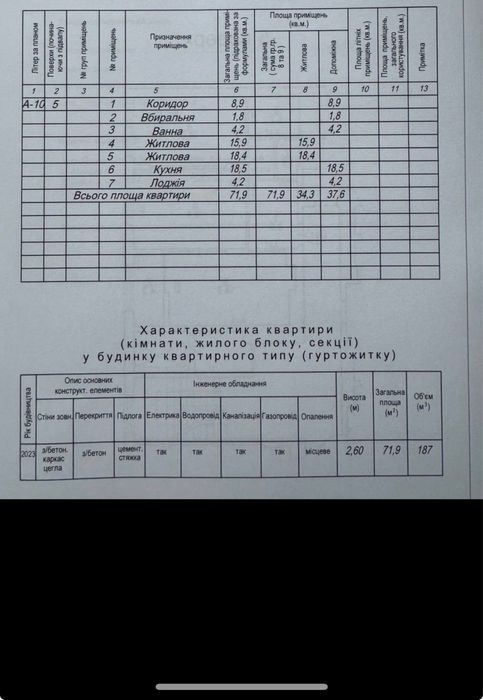 Літер за планом
Поверхи (починаючи з підвалу)
№ груп приміщень
№ приміщень
Призначення приміщень
Загальна площа приміщень (підрахована за формулами) (кв.м.)
Площа приміщень (кв.м.)
Загальна (сума гр.гр. 8 та 9)
Житлова
Допоміжна
Площа літніх приміщень (кв.м.)
Площа приміщень, загального користування (кв.м.)
Примітка
1 2 3 4 5 6 7 8 9 10 11 13
А-10 5 1 Коридор 8,9 8,9
2 Вбиральня 1,8 1,8
3 Ванна 4,2 4,2
4 Житлова 15,9 15,9
5 Житлова 18,4 18,4
6 Кухня 18,5 18,5
7 Лоджія 4,2 4,2
Всього площа квартири 71,9 71,9 34,3 37,6
Характеристика квартири
(кімнати, жилого блоку, секції)
у будинку квартирного типу (гуртожитку)
Рік будівництва
Опис основних конструкт. елементів
Інженерне обладнання
Висота (м)
Загальна площа (м²)
Об'єм (м³)
Стіни зовн. Перекриття Підлога Електрика Водопровід Каналізація Газопровід Опалення
2023 з/бетон. каркас цегла з/бетон цемент. стяжка так так так так місцеве 2,60 71,9 187